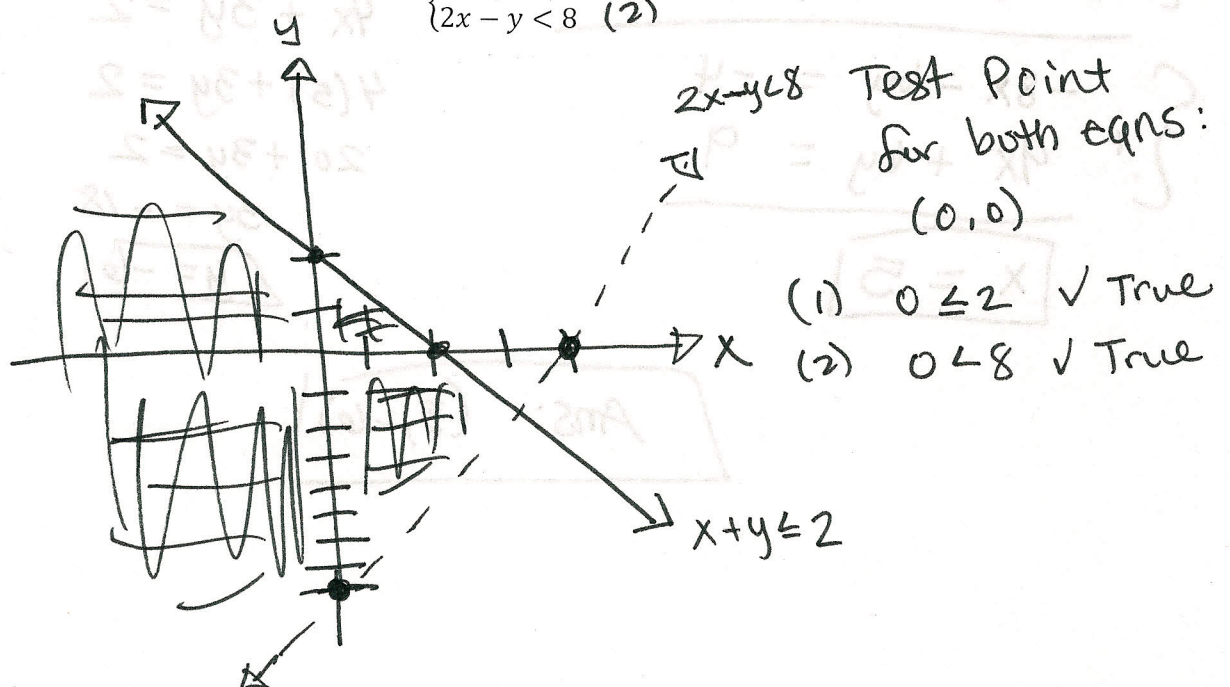 {2x − y < 8 (2)
y
2x-y<8 Test Point
for both eqns:
(0,0)
(1) 0 ≤ 2 ✓ True
x
(2) 0 < 8 ✓ True
x+y≤2